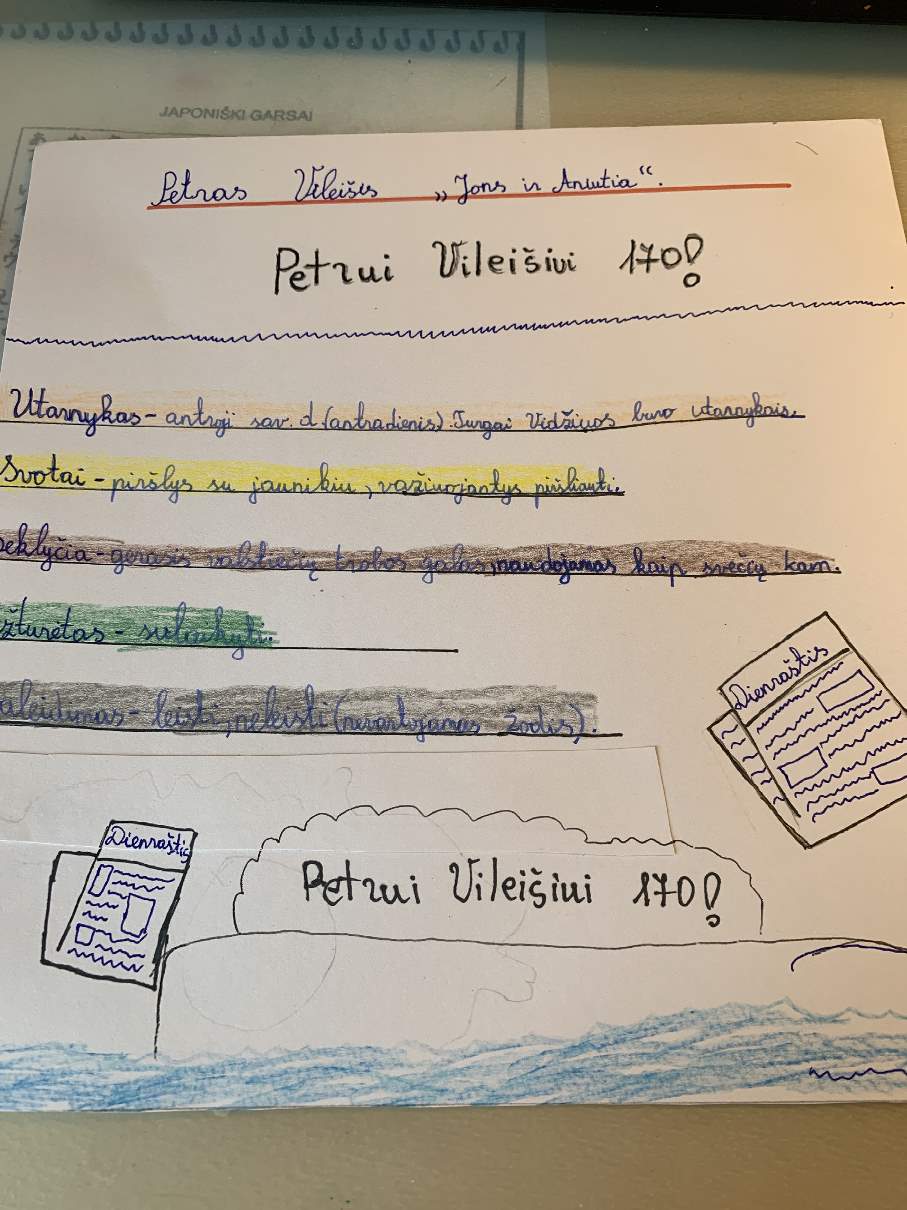 JAPONIŠKI GARSAI
Petras Vileišis „Jons ir Aniutia“.
Petrui Vileišiui 170!
Utarnykas – antroji sav. d. (antradienis). Turgai Vidžiuos buvo utarnykais.
Svotai – piršlys su jaunikiu, važiuojantys piršliauti.
seklyčia – gerasis valstiečių trobos galas, naudojamas kaip svečių kam.
žturetas – sulaikyti.
aleidimas – leisti, nekisti (nevartojamas žodis).
Dienraštis
Dienraštis
Petrui Vileišiui 170!